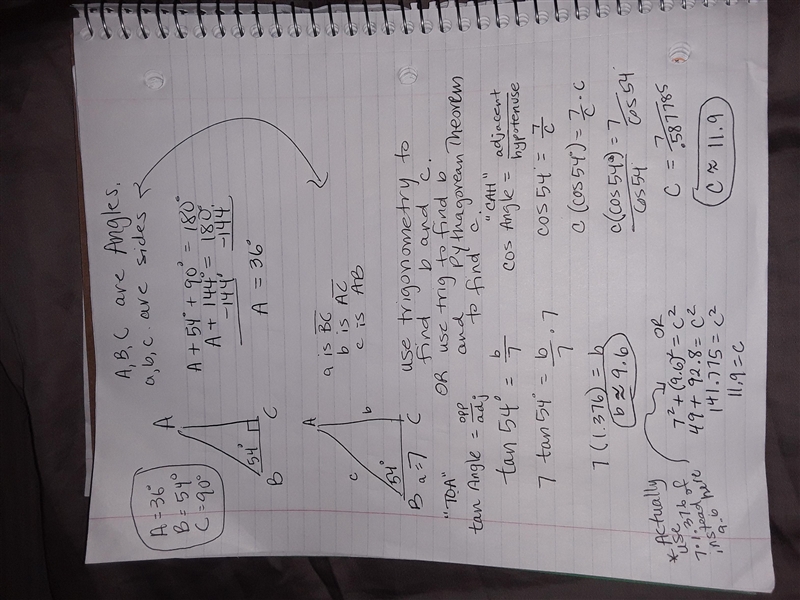 A = 36°
B = 54°
C = 90°
A
54°
B
C
A, B, C are Angles.
a, b, c are sides
A + 54° + 90° = 180°
A + 144° = 180°
-144° -144°
A = 36°
A
c
b
54°
B a = 7 C
a is BC
b is AC
c is AB
use trigonometry to
find b and c.
OR use trig to find b
and Pythagorean Theorem
to find c.
"TOA"
tan Angle = opp/adj
tan 54° = b/7
7 tan 54° = b/7 · 7
7(1.376) = b
b ≈ 9.6
"CAH"
cos Angle = adjacent/hypotenuse
cos 54° = 7/c
c(cos 54°) = 7/c · c
c(cos 54°)/cos 54 = 7/cos 54
c = 7/.587785
c ≈ 11.9
OR
7² + (9.6)² = c²
49 + 92.8 = c²
141.775 = c²
11.9 = c
* Actually
use
7·1.376
instead of
9.6
here